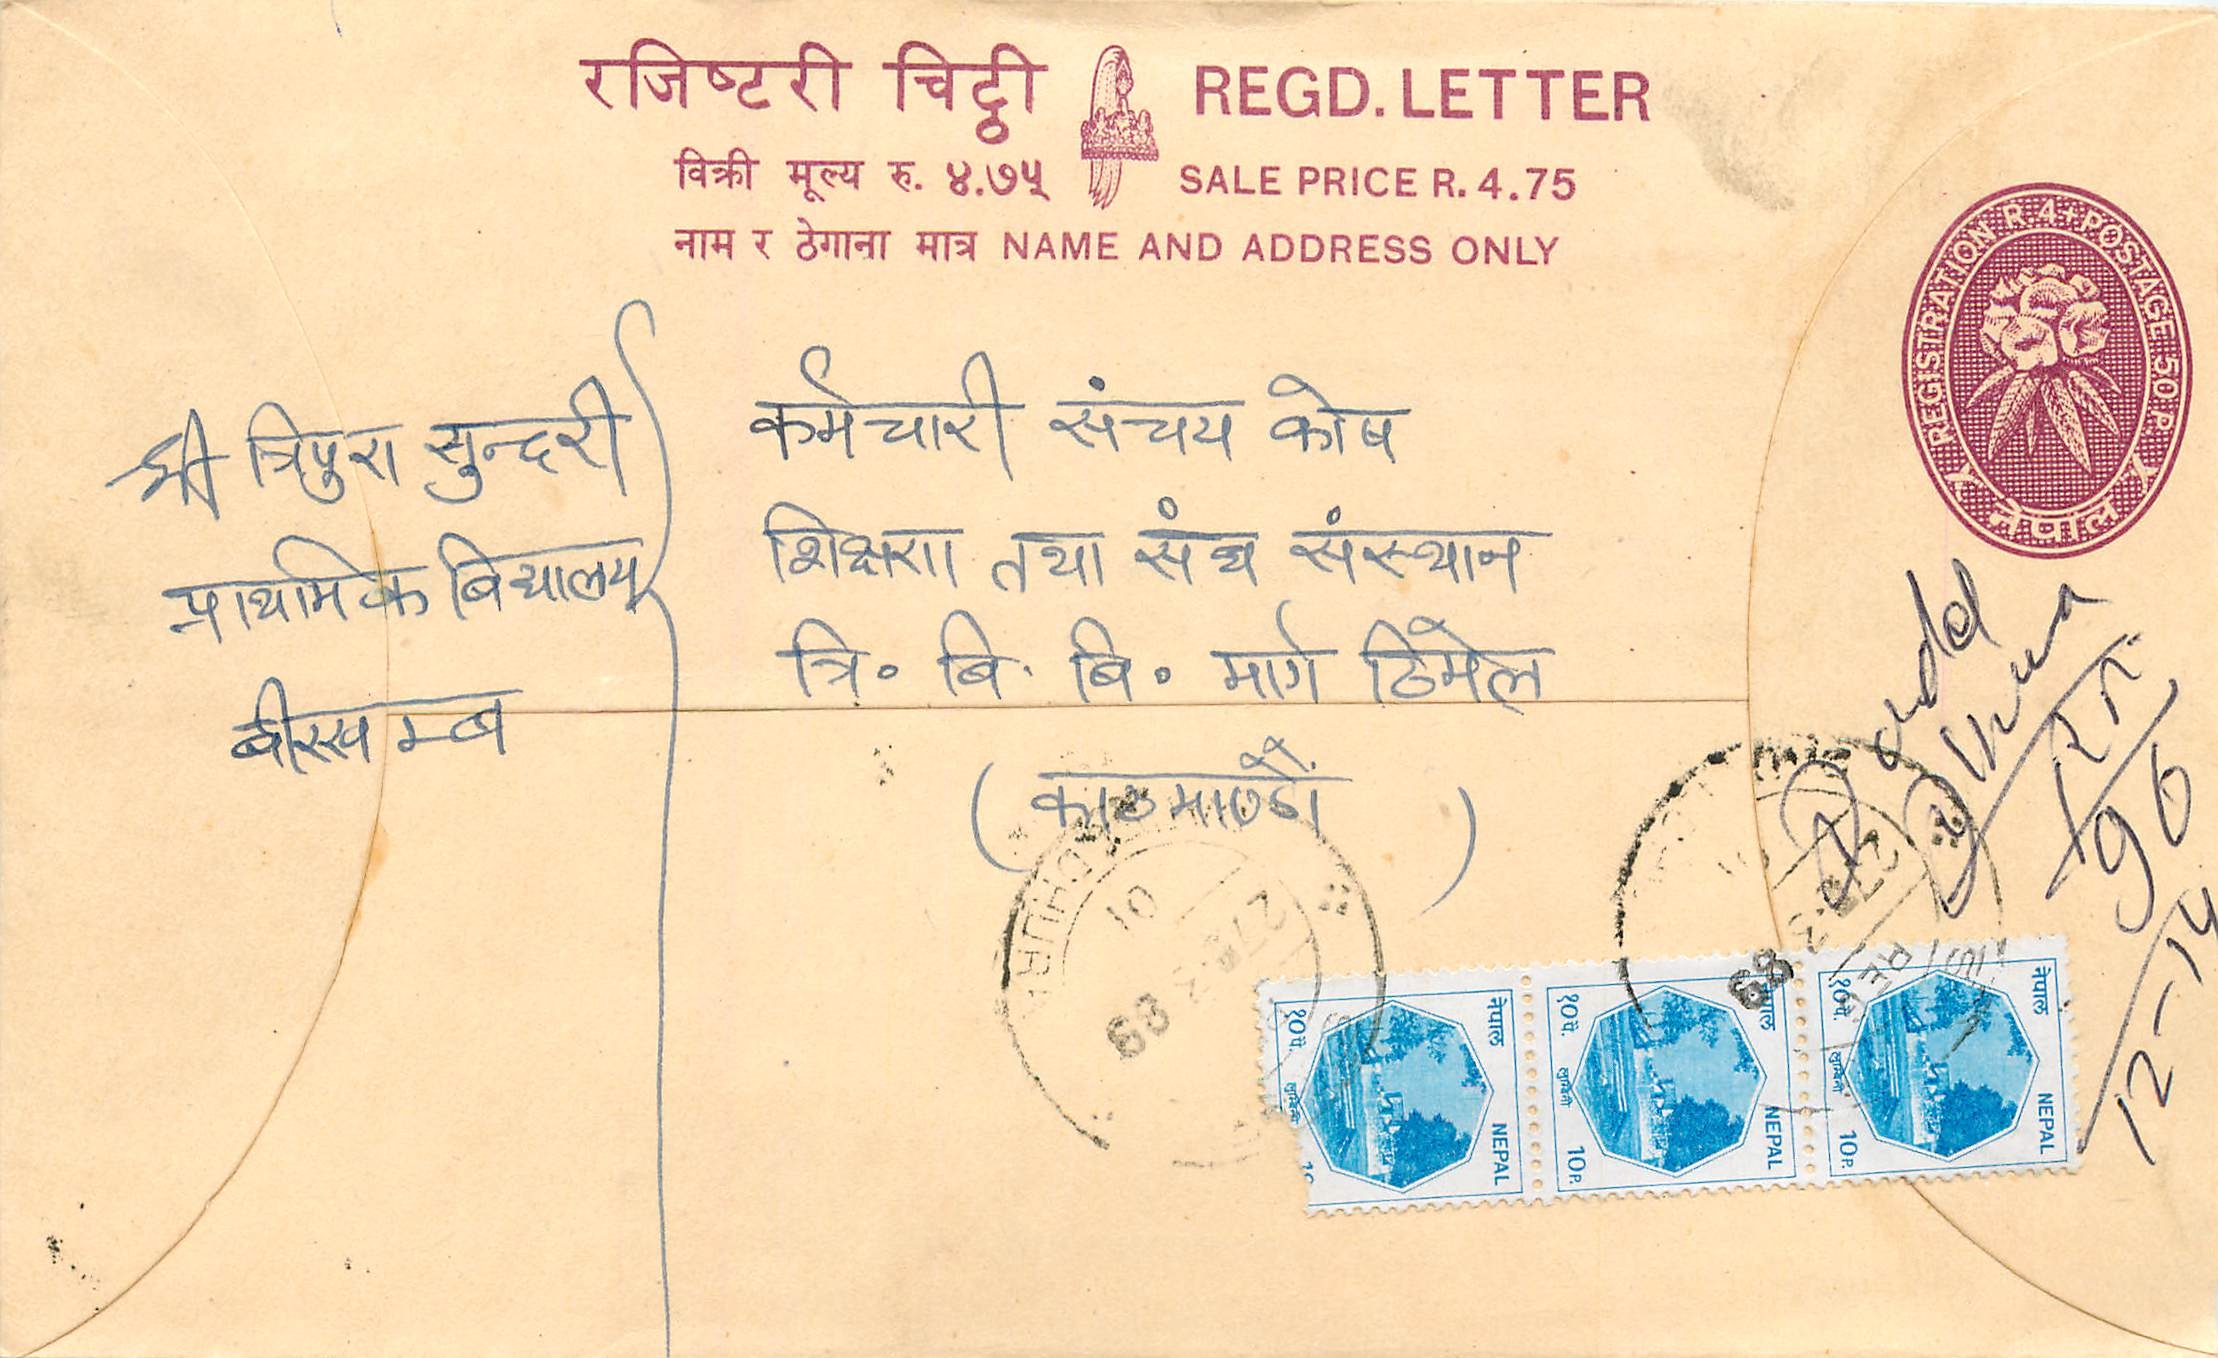 रजिष्टरी चिट्ठी REGD. LETTER
विक्री मूल्य रु. ४.७५ SALE PRICE R. 4.75
नाम र ठेगाना मात्र NAME AND ADDRESS ONLY
REGISTRATION R. 4 + POSTAGE 50 P.
नेपाल
श्री त्रिपुरा सुन्दरी
प्राथमिक बिद्यालय
बीरखम्ब
कर्मचारी संचय कोष
शिक्षण तथा संघ संस्थान
त्रि. बि. बि. मार्ग ठिमेल
(काठमाण्डौं)
96
12-14
नेपाल १० पै. लुम्बिनी NEPAL 10
नेपाल १० पै. लुम्बिनी NEPAL 10 P.
नेपाल १० पै. लुम्बिनी NEPAL 10 P.